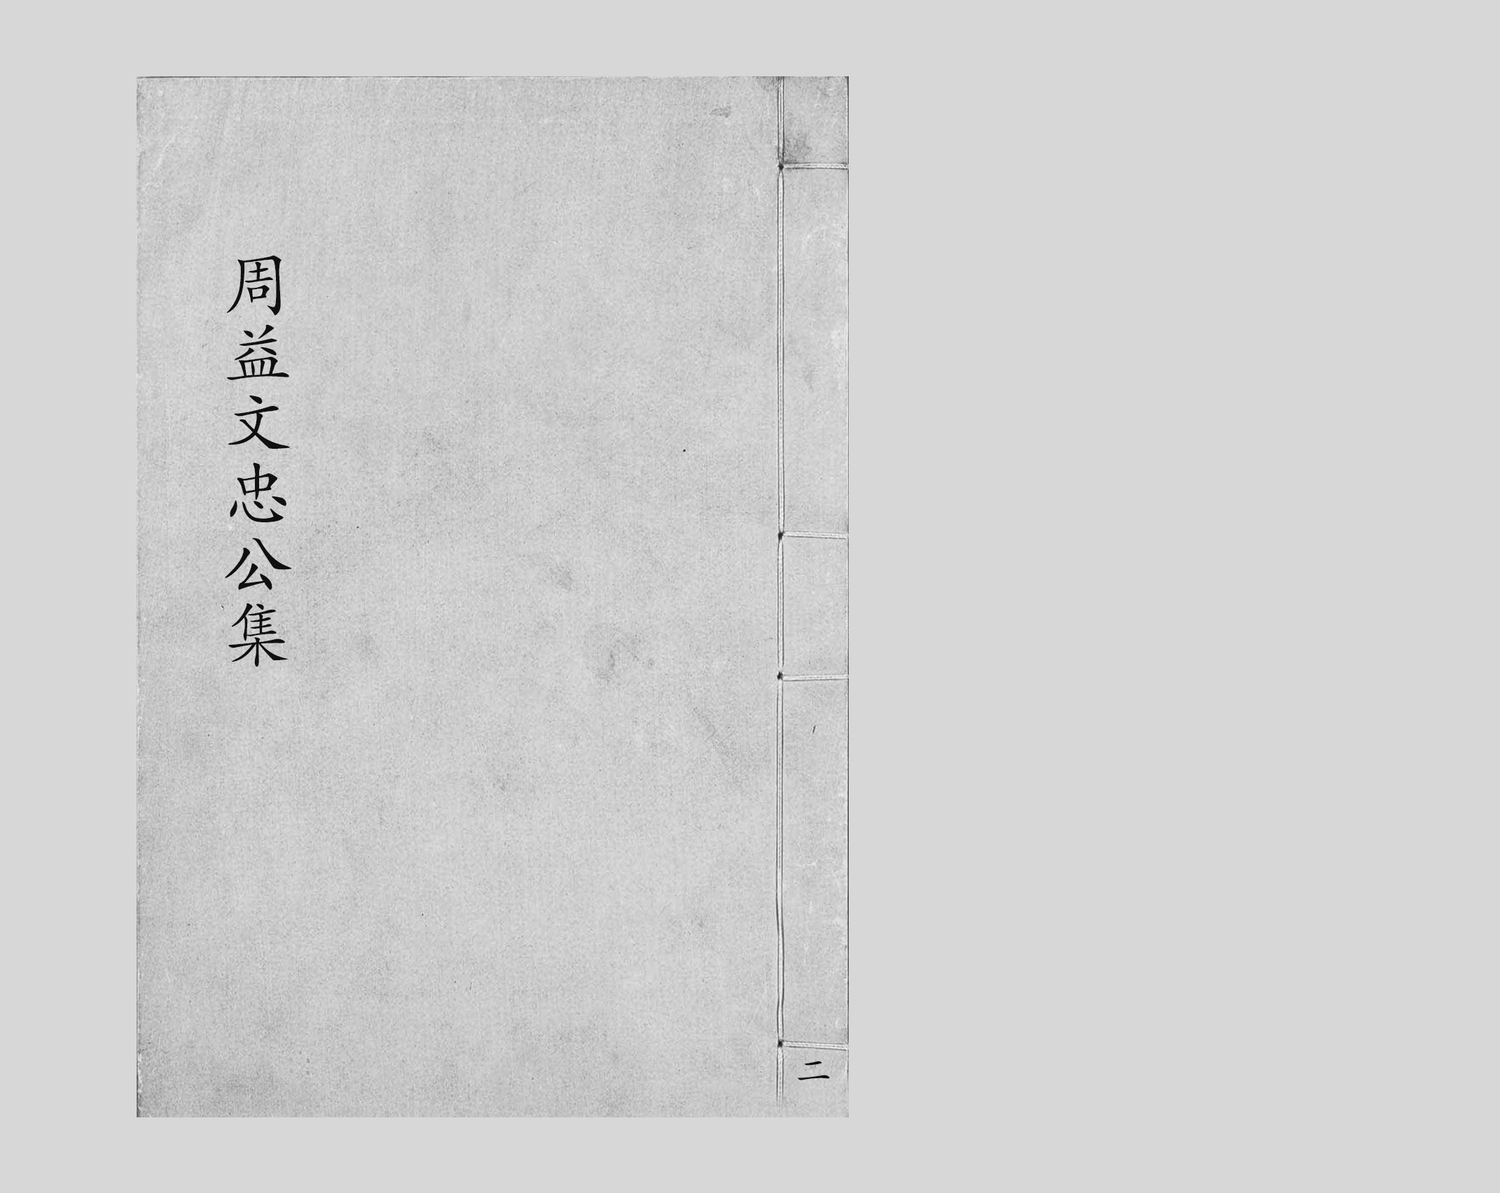 周益文忠公集
二